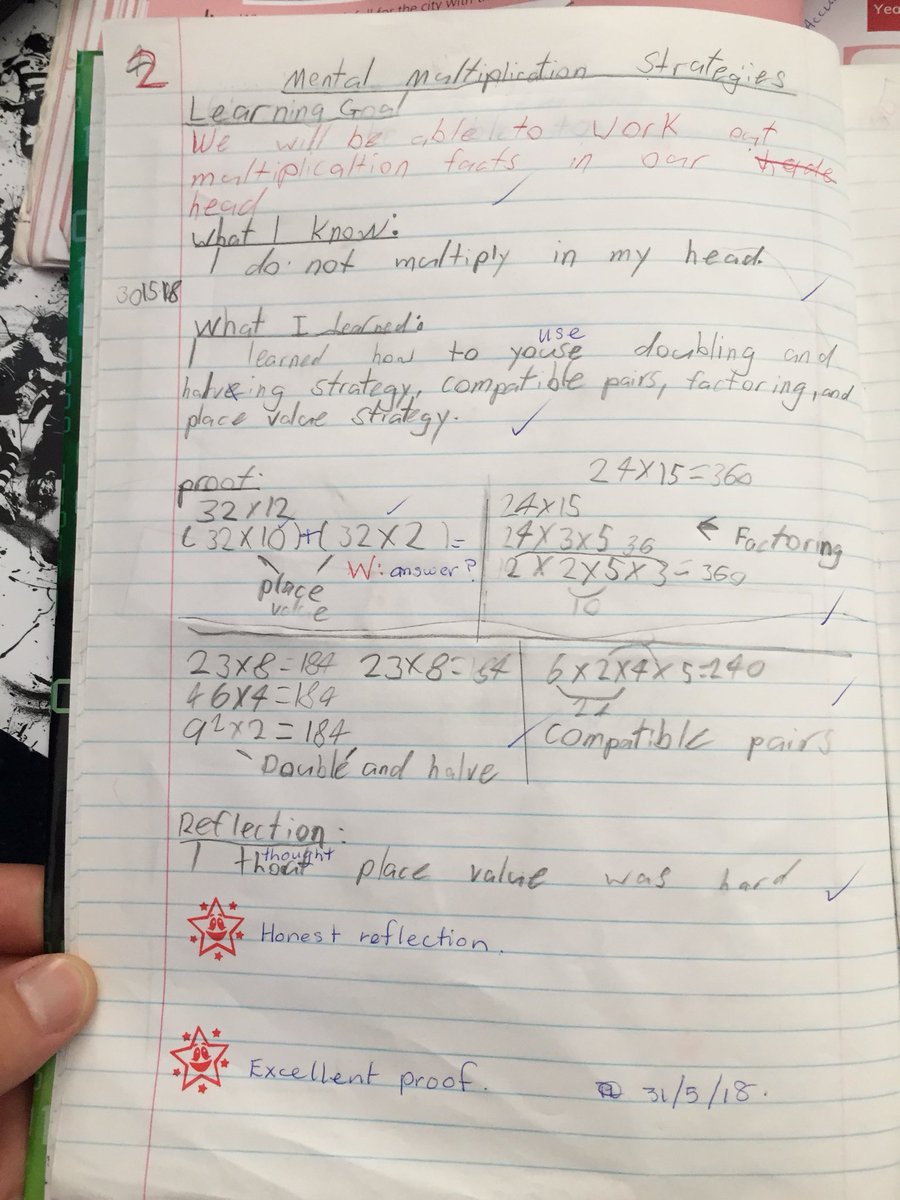 2
Mental Multiplication Strategies
Learning Goal
We will be able to work out
multiplicaltion facts in our
head
What I know:
I do not multiply in my head.
30/5/18
What I learned:
use
I learned how to youse doubling and
halveing strategy, compatible pairs, factoring, and
place value strategy.
proof:
32×12
(32×10)+(32×2)=
place
value
W: answer?
24×15=360
24×15
24×3×5
36
12×2×5×3=360
10
← Factoring
23×8=184 23×8=
46×4=184
92×2=184
Double and halve
6×2×4×5=240
Compatible pairs
Reflection:
thought
I thout place value was hard
Honest reflection.
Excellent proof.
31/5/18.
Yea